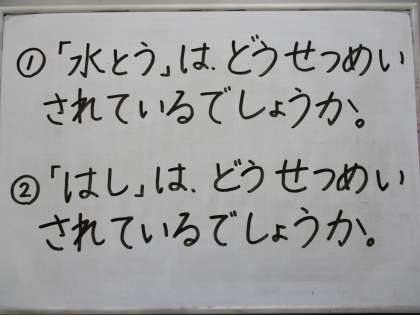 ①「水とう」は、どうせつめい
されているでしょうか。
②「はし」は、どうせつめい
されているでしょうか。